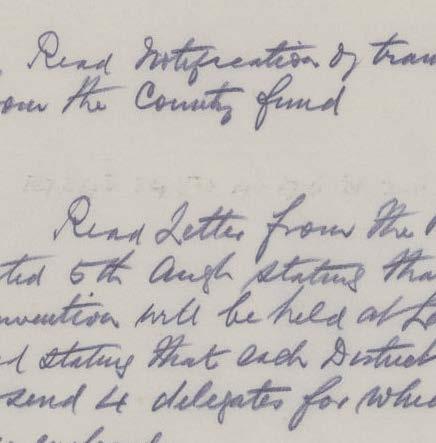 Read Notification of tran
om the County fund
Read Letter from the
ted 5th Augh stating tha
nvention will be held at Le
d stating that each District
send 4 delegates for whic